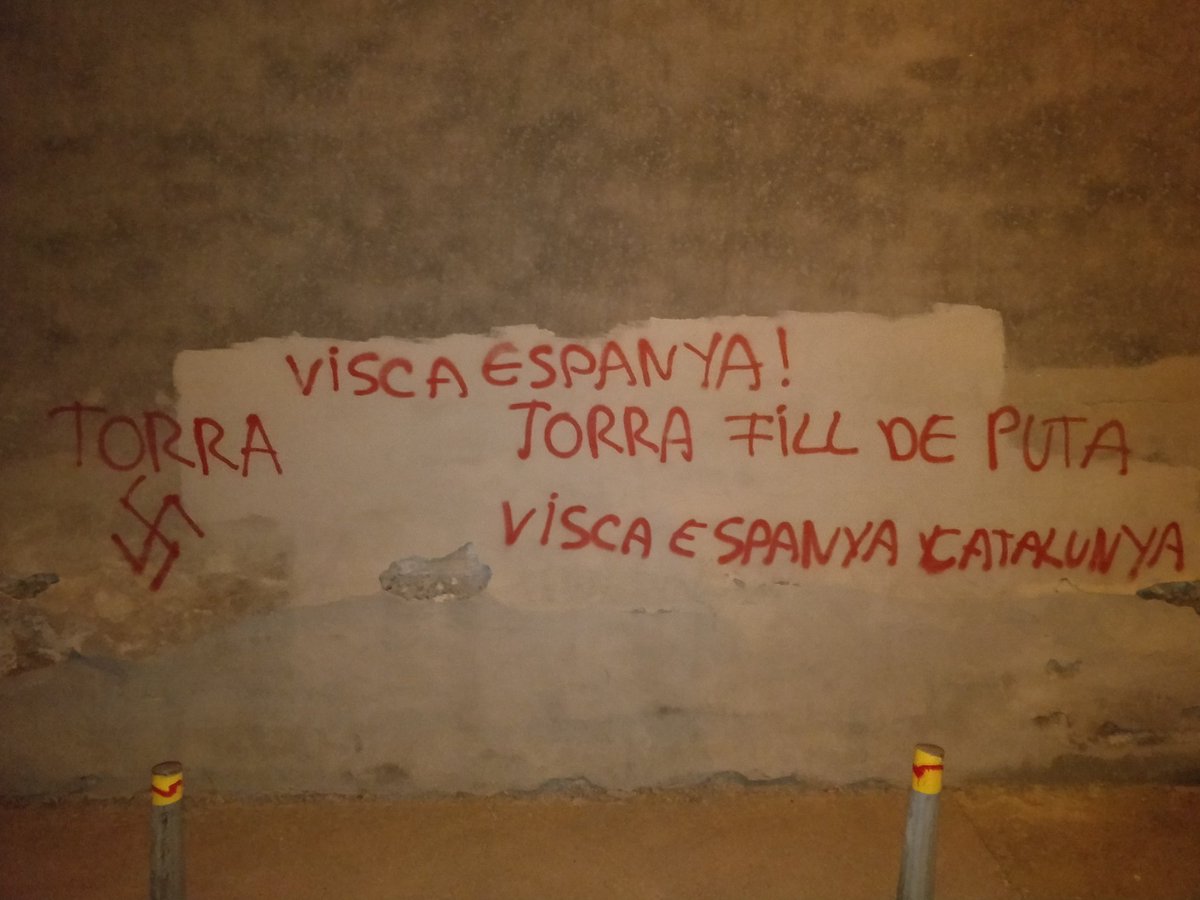 VISCA ESPANYA!
TORRA
TORRA FILL DE PUTA
VISCA ESPANYA Y CATALUNYA